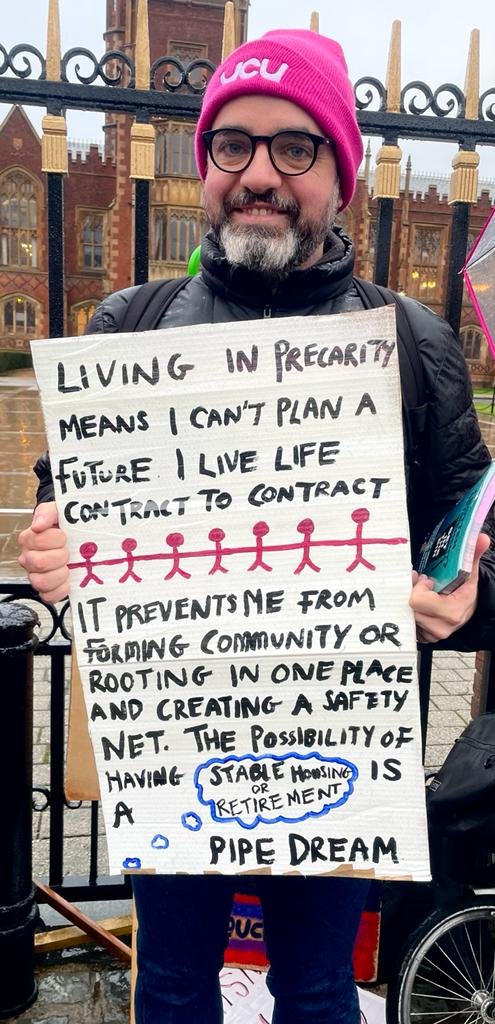 UCU
LIVING IN PRECARITY
MEANS I CAN'T PLAN A
FUTURE. I LIVE LIFE
CONTRACT TO CONTRACT
IT PREVENTS ME FROM
FORMING COMMUNITY OR
ROOTING IN ONE PLACE
AND CREATING A SAFETY
NET. THE POSSIBILITY OF
HAVING STABLE HOUSING IS
OR
A RETIREMENT
PIPE DREAM
UCU